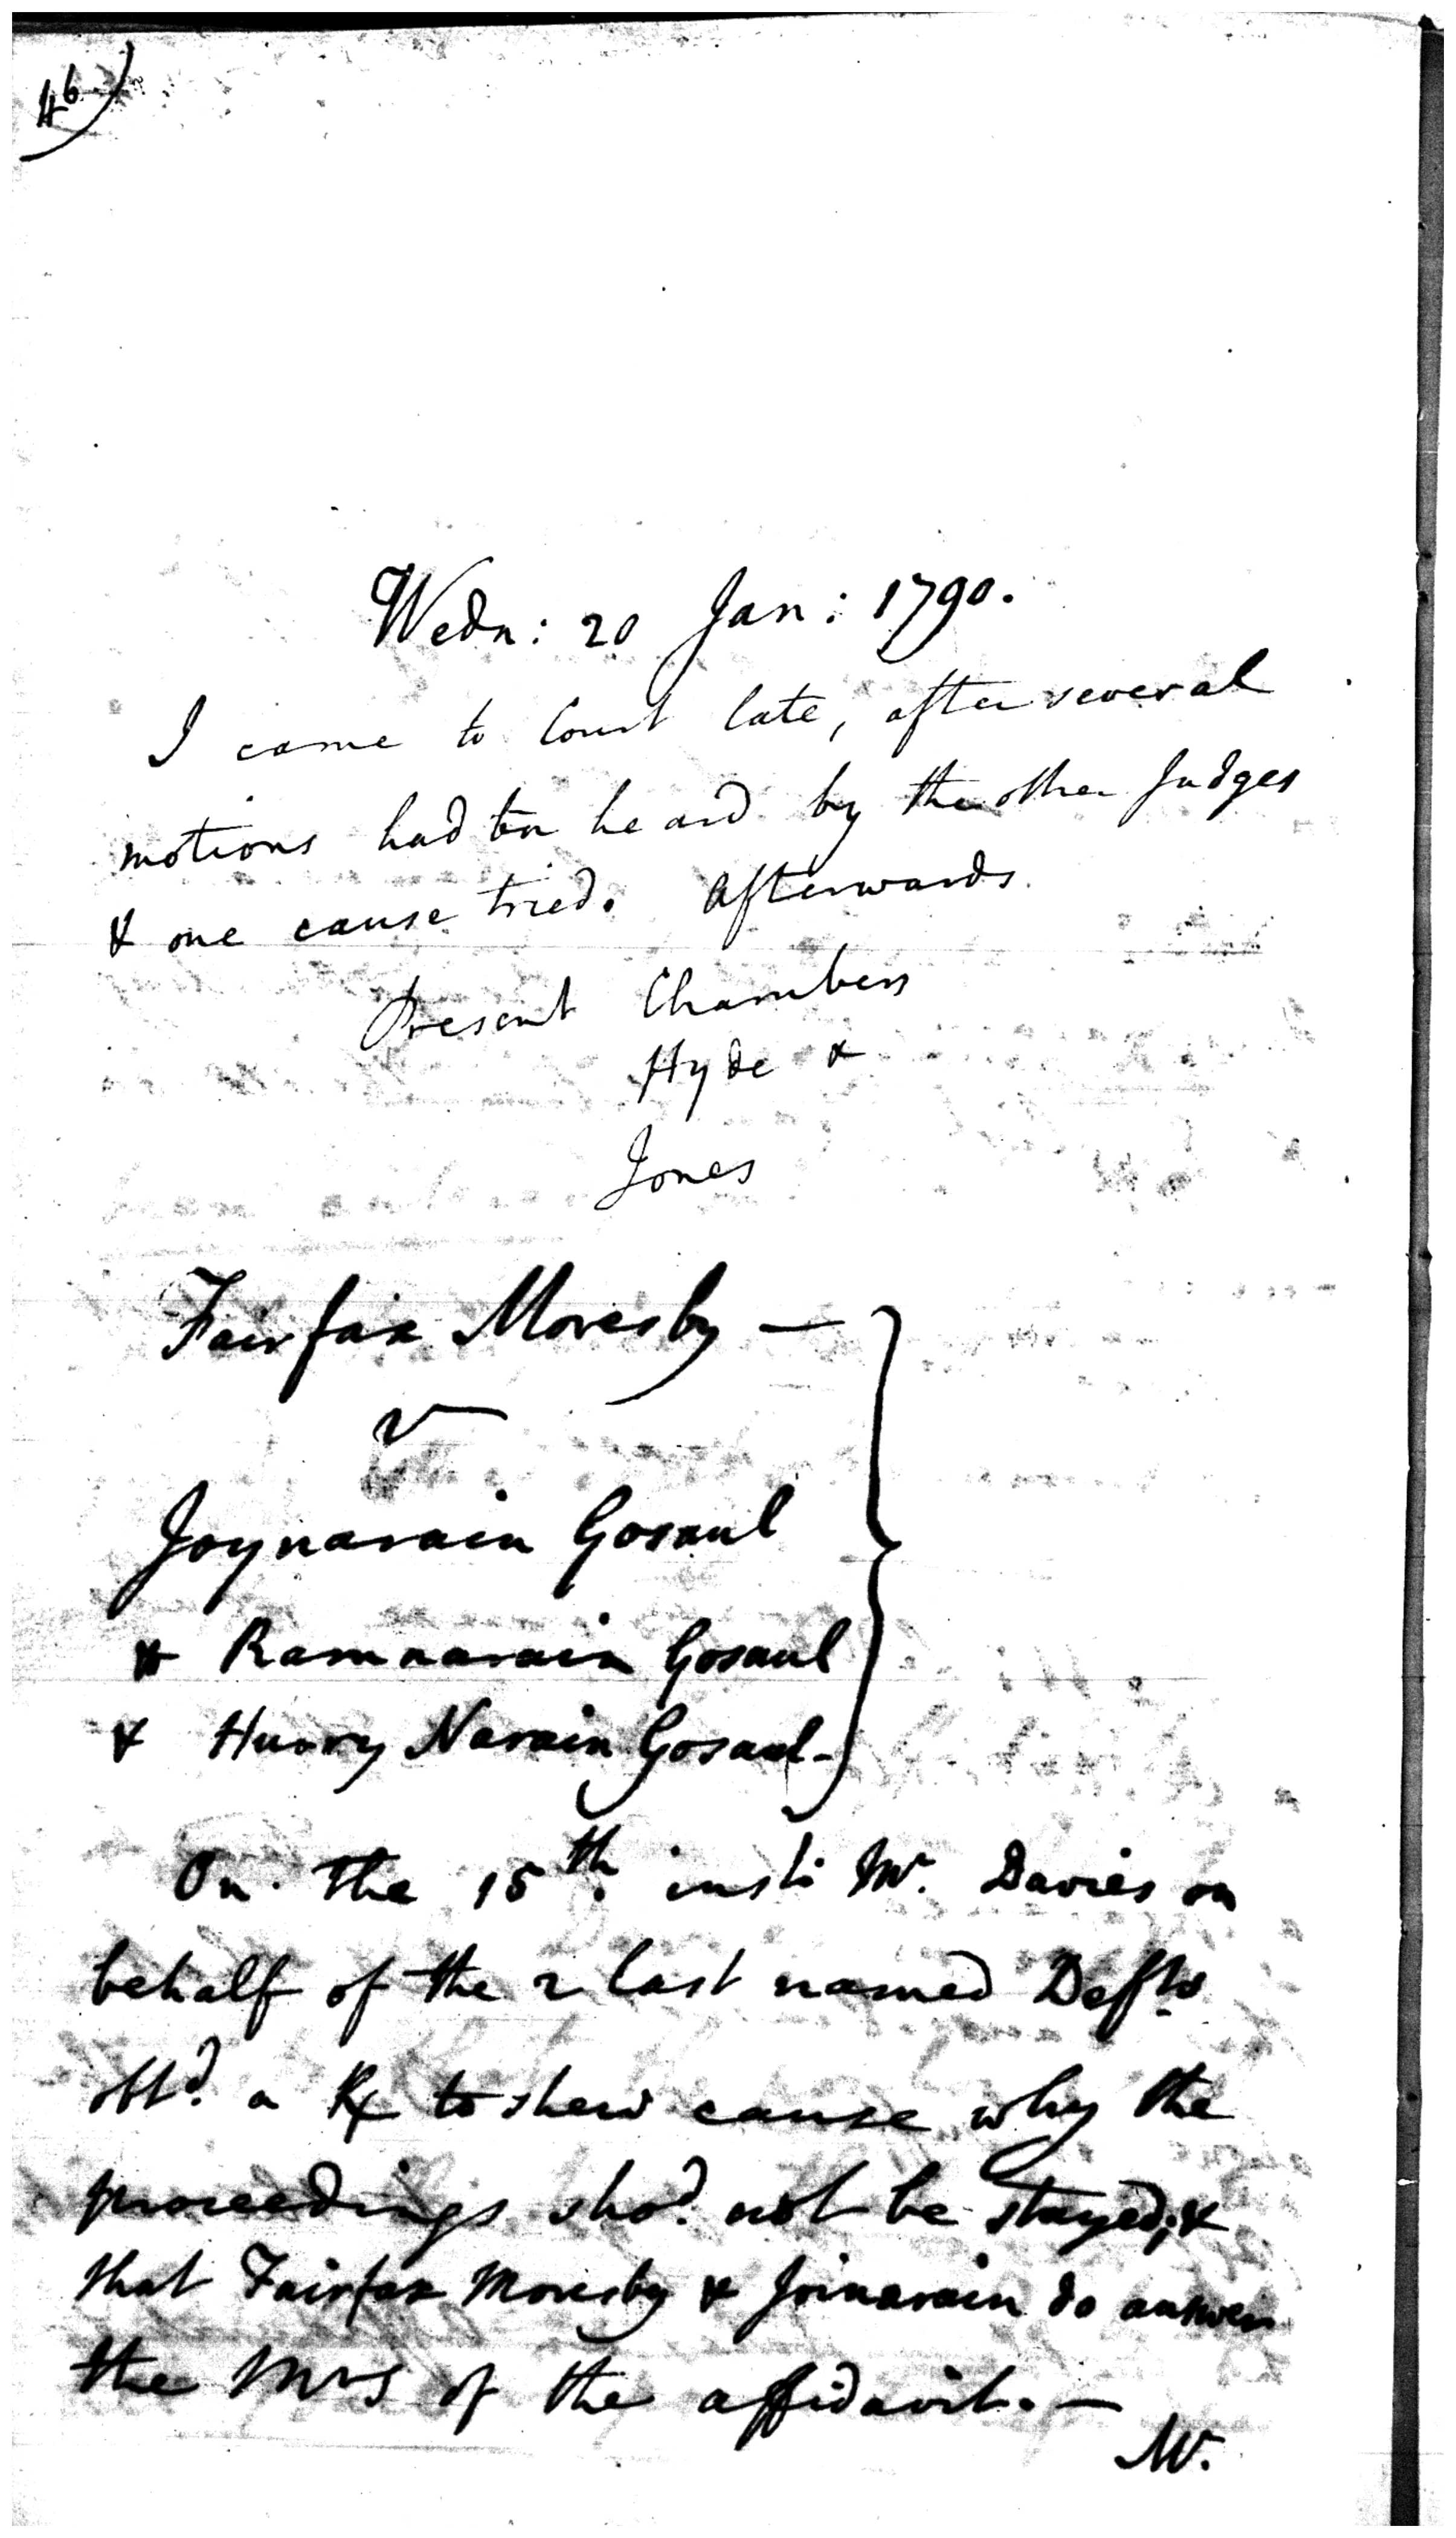 46)
Wedn: 20 Jan: 1790.
I came to Court late, after several
motions had been heard by the other Judges
& one cause tried. Afterwards
Present Chambers
Hyde &
Jones
Fairfax Moresby —
v
Joynarain Gosaul
& Ramnarain Gosaul
& Hurry Narain Gosaul -
On the 15th. inst: Mr. Davies on
behalf of the 2 last named Defts.
obtd. a to shew cause why the
proceedings shod. not be stayed; &
that Fairfax Moresby & Joinarain do answer
the of the affidavit. —
Mr.